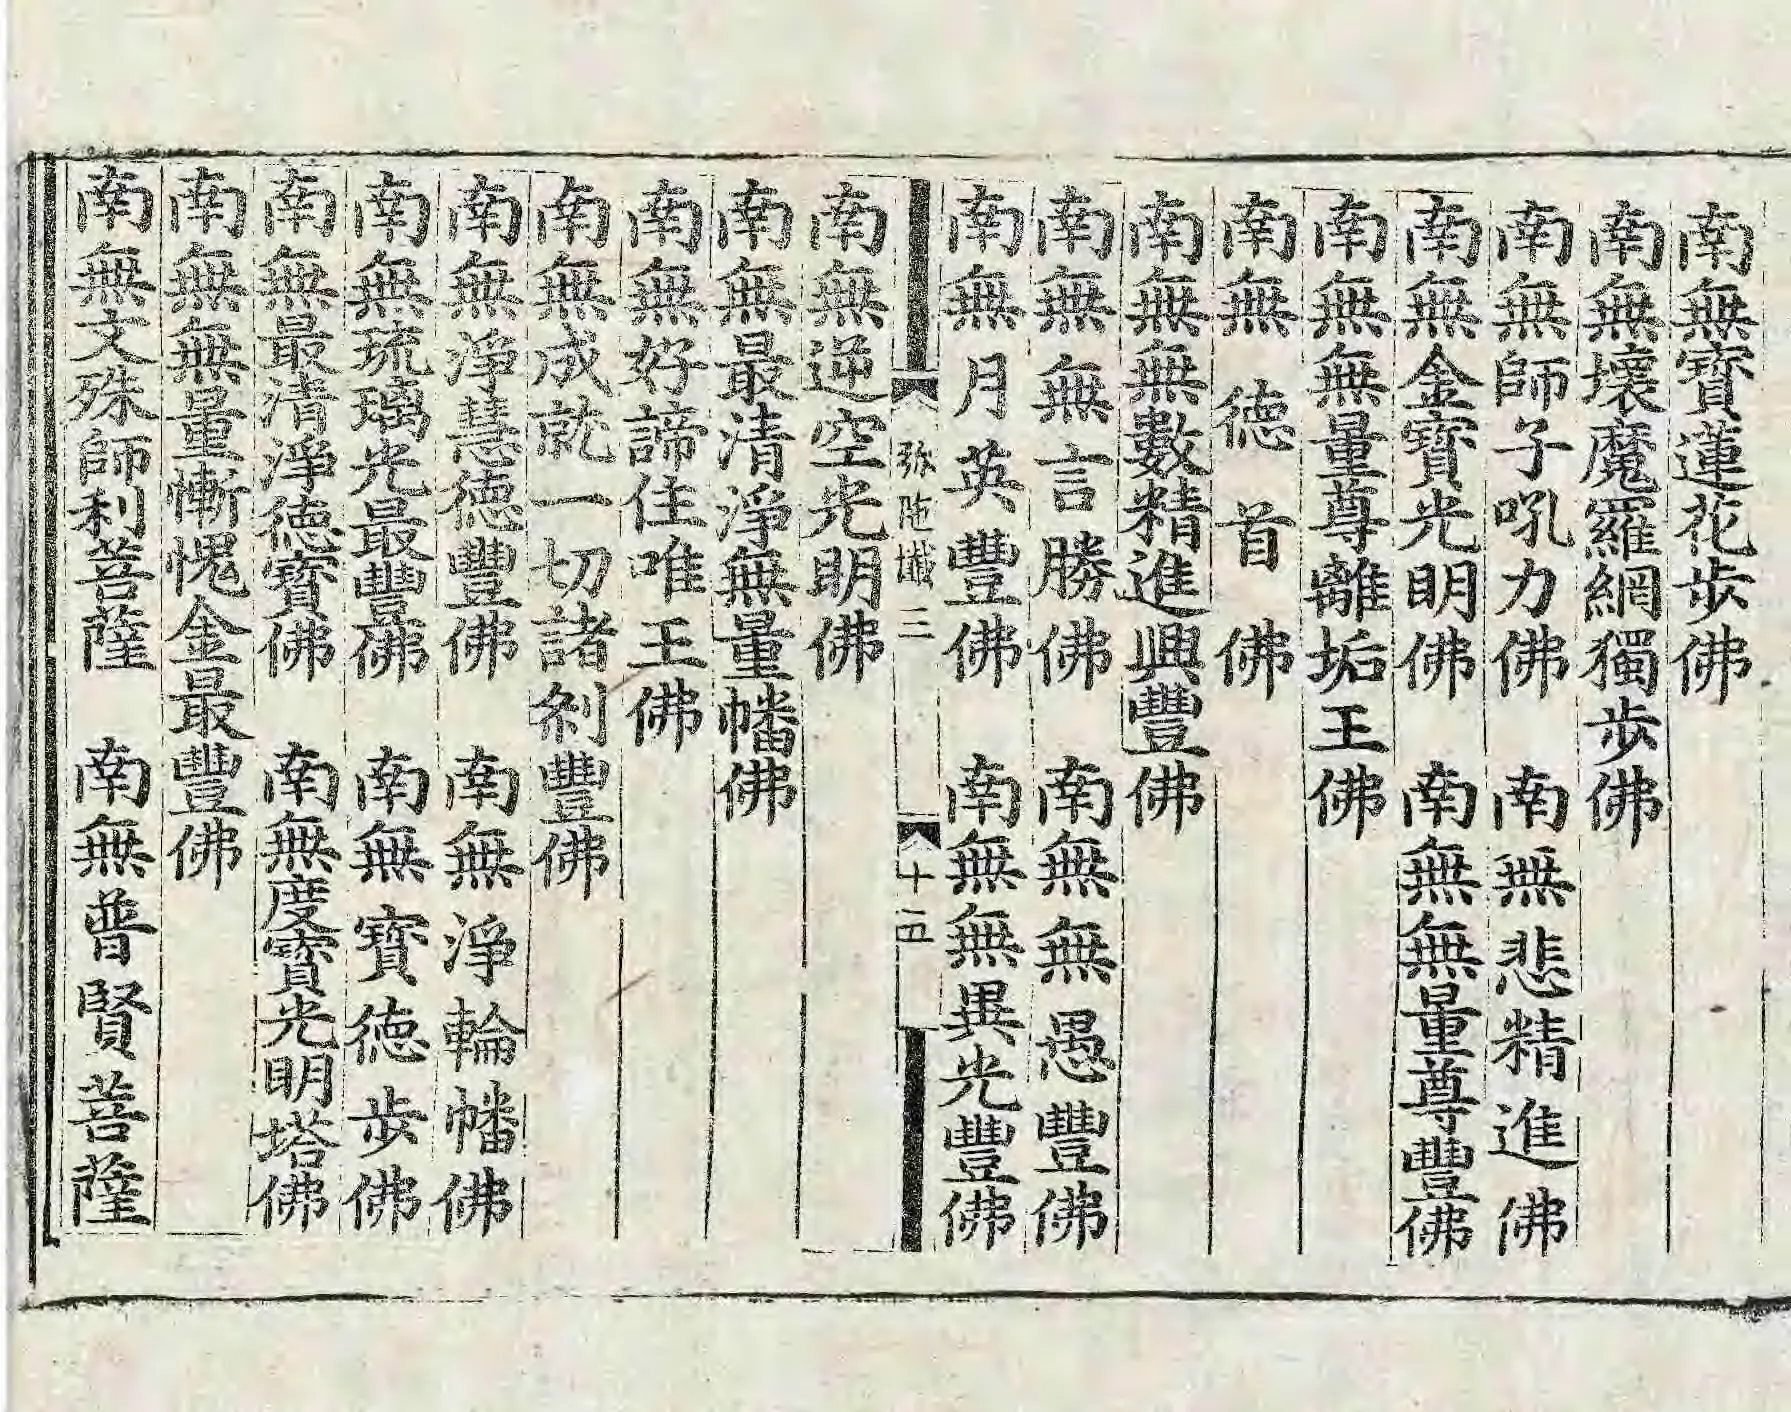 南無寶蓮花步佛
南無壞魔羅網獨步佛
南無師子吼力佛　南無悲精進佛
南無金寶光明佛　南無無量尊豐佛
南無無量尊離垢王佛
南無德首佛
南無無數精進興豐佛
南無無言勝佛　南無無愚豐佛
南無月英豐佛　南無無異光豐佛
弥陁懺三　十五
南無逆空光明佛
南無最清淨無量幡佛
南無好諦住唯王佛
南無成就一切諸剎豐佛
南無淨慧德豐佛　南無淨輪幡佛
南無琉璃光最豐佛　南無寶德步佛
南無最清淨德寶佛　南無度寶光明塔佛
南無無量慚愧金最豐佛
南無文殊師利菩薩　南無普賢菩薩